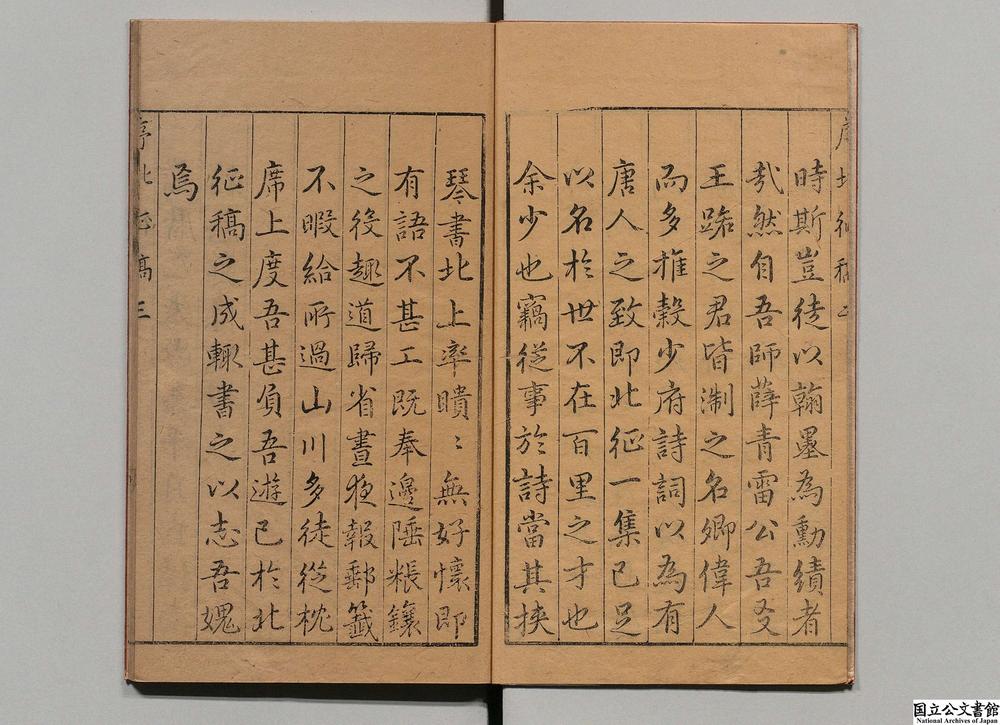 時斯豈徒以翰墨為勳績者
哉然自吾師薛青雷公吾友
王踞之君皆淛之名卿偉人
而多推轂少府詩詞以為有
唐人之致即北征一集已足
以名於世不在百里之才也
余少也竊從事於詩當其挾
琴書北上率瞶〻無好懷即
有語不甚工既奉邊陲粻鑲
之役趣道歸省晝夜報郵籤
不暇給所過山川多徒從枕
席上度吾甚負吾遊已於北
征稿之成輒書之以志吾媿
焉
序北征稿二
序北征稿三
国立公文書館
National Archives of Japan